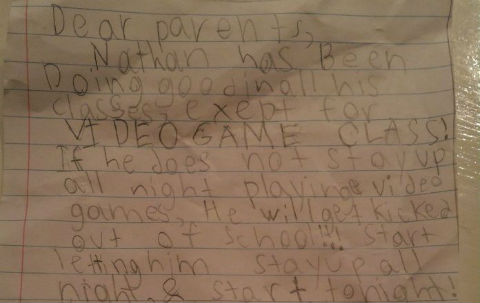 Dear parents,
Nathan has Been
Doing good in all his
classes, exept for
VIDEO GAME CLASS!
If he does not stay up
all night playing video
games, He will get kicked
out of school!!! Start
letting him stay up all
night, & start tonight!